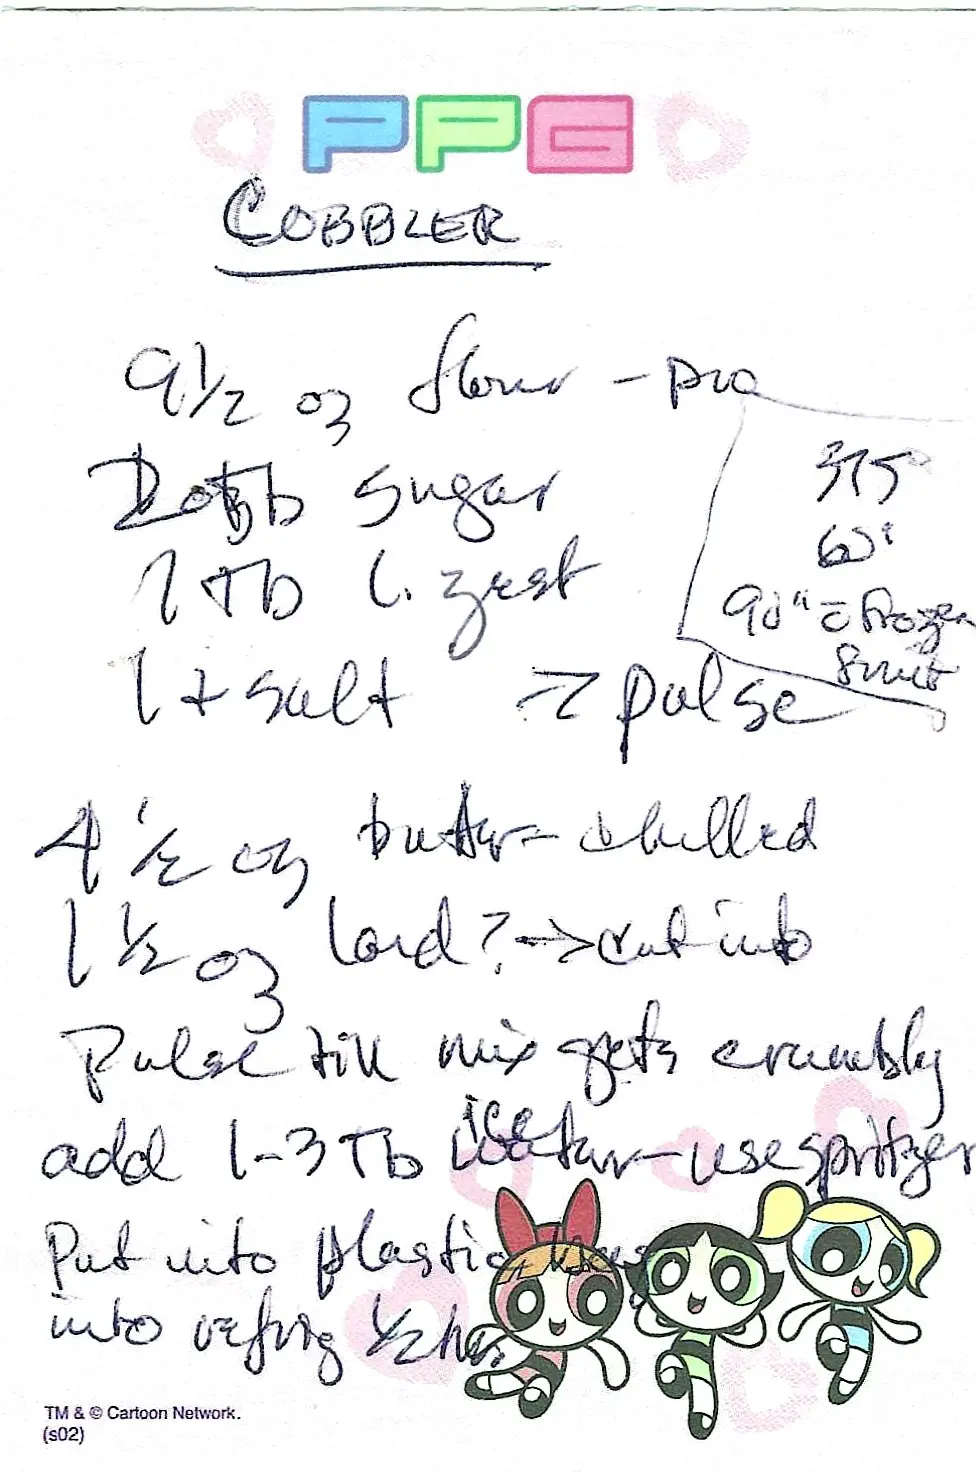 PPG
COBBLER
9 1/2 oz flour - pro
375°
Tb sugar
60'
1 Tb l. zest
90" = frozen
fruit
1 t salt → pulse
4 1/2 oz butter - chilled
1 1/2 oz lard? → cut into
Pulse till mix gets crumbly
add 1-3 Tb ice water - use spritzer
Put into plastic
into refrig 1/2 hr.
TM & © Cartoon Network.
(s02)